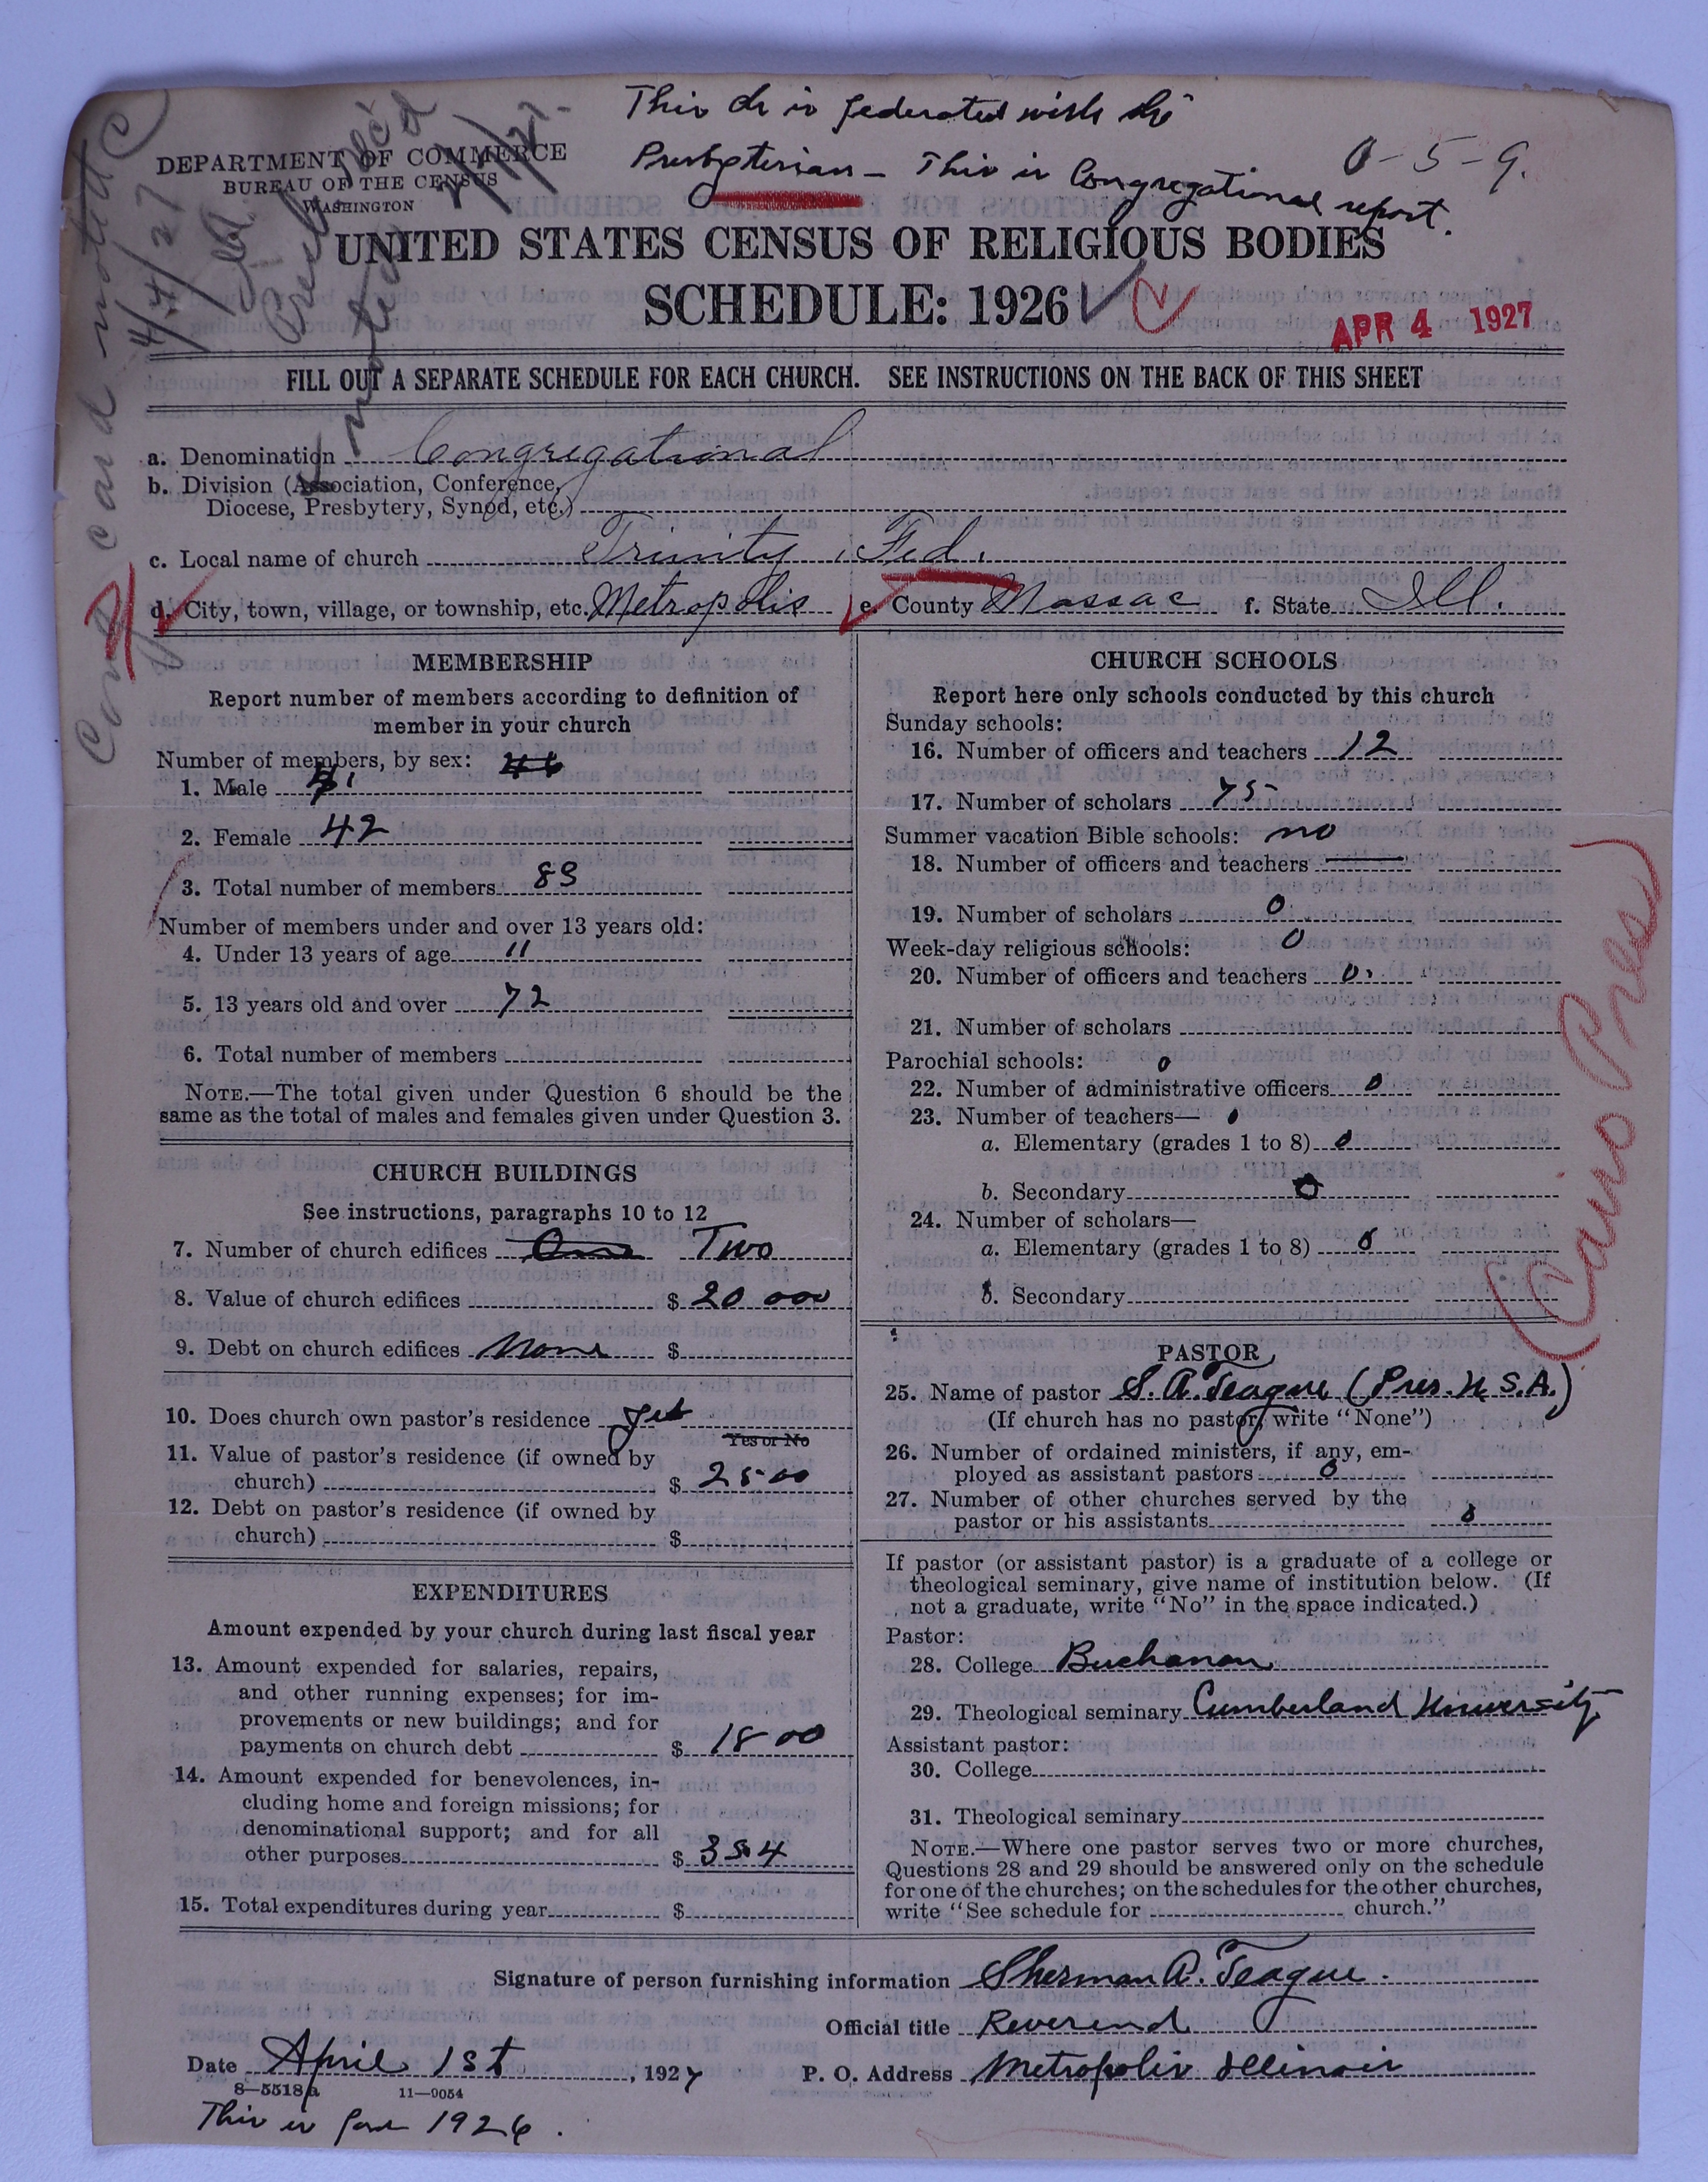 This ch is federated with the
Presbyterian — This is Congregational report.
0-5-9.
DEPARTMENT OF COMMERCE
BUREAU OF THE CENSUS
WASHINGTON
UNITED STATES CENSUS OF RELIGIOUS BODIES
SCHEDULE: 1926
APR 4 1927
FILL OUT A SEPARATE SCHEDULE FOR EACH CHURCH. SEE INSTRUCTIONS ON THE BACK OF THIS SHEET
a. Denomination Congregational
b. Division (Association, Conference,
Diocese, Presbytery, Synod, etc.)
c. Local name of church Trinity, Fed.
d. City, town, village, or township, etc. Metropolis e. County Massac f. State Ill.
MEMBERSHIP
Report number of members according to definition of
member in your church
Number of members, by sex:
1. Male
2. Female 42
3. Total number of members 83
Number of members under and over 13 years old:
4. Under 13 years of age 11
5. 13 years old and over 72
6. Total number of members
NOTE.—The total given under Question 6 should be the
same as the total of males and females given under Question 3.
CHURCH BUILDINGS
See instructions, paragraphs 10 to 12
7. Number of church edifices One Two
8. Value of church edifices $ 20 000
9. Debt on church edifices None $
10. Does church own pastor's residence yes
Yes or No
11. Value of pastor's residence (if owned by
church) $ 2500
12. Debt on pastor's residence (if owned by
church) $
EXPENDITURES
Amount expended by your church during last fiscal year
13. Amount expended for salaries, repairs,
and other running expenses; for im-
provements or new buildings; and for
payments on church debt $ 1800
14. Amount expended for benevolences, in-
cluding home and foreign missions; for
denominational support; and for all
other purposes $ 354
15. Total expenditures during year $
CHURCH SCHOOLS
Report here only schools conducted by this church
Sunday schools:
16. Number of officers and teachers 12
17. Number of scholars 75
Summer vacation Bible schools: no
18. Number of officers and teachers
19. Number of scholars 0
Week-day religious schools: 0
20. Number of officers and teachers 0
21. Number of scholars
Parochial schools: 0
22. Number of administrative officers 0
23. Number of teachers— 0
a. Elementary (grades 1 to 8) 0
b. Secondary 0
24. Number of scholars—
a. Elementary (grades 1 to 8) 0
b. Secondary
PASTOR
25. Name of pastor S. A. Teague (Pres. U.S.A.)
(If church has no pastor, write "None")
26. Number of ordained ministers, if any, em-
ployed as assistant pastors 0
27. Number of other churches served by the
pastor or his assistants 0
If pastor (or assistant pastor) is a graduate of a college or
theological seminary, give name of institution below. (If
not a graduate, write "No" in the space indicated.)
Pastor:
28. College Buchanan
29. Theological seminary Cumberland University
Assistant pastor:
30. College
31. Theological seminary
NOTE.—Where one pastor serves two or more churches,
Questions 28 and 29 should be answered only on the schedule
for one of the churches; on the schedules for the other churches,
write "See schedule for church."
Cairo Pres
Signature of person furnishing information Sherman A. Teague.
Official title Reverend
Date April 1st, 1927 P. O. Address Metropolis Illinois
8—5518a 11—9054
This is for 1926.